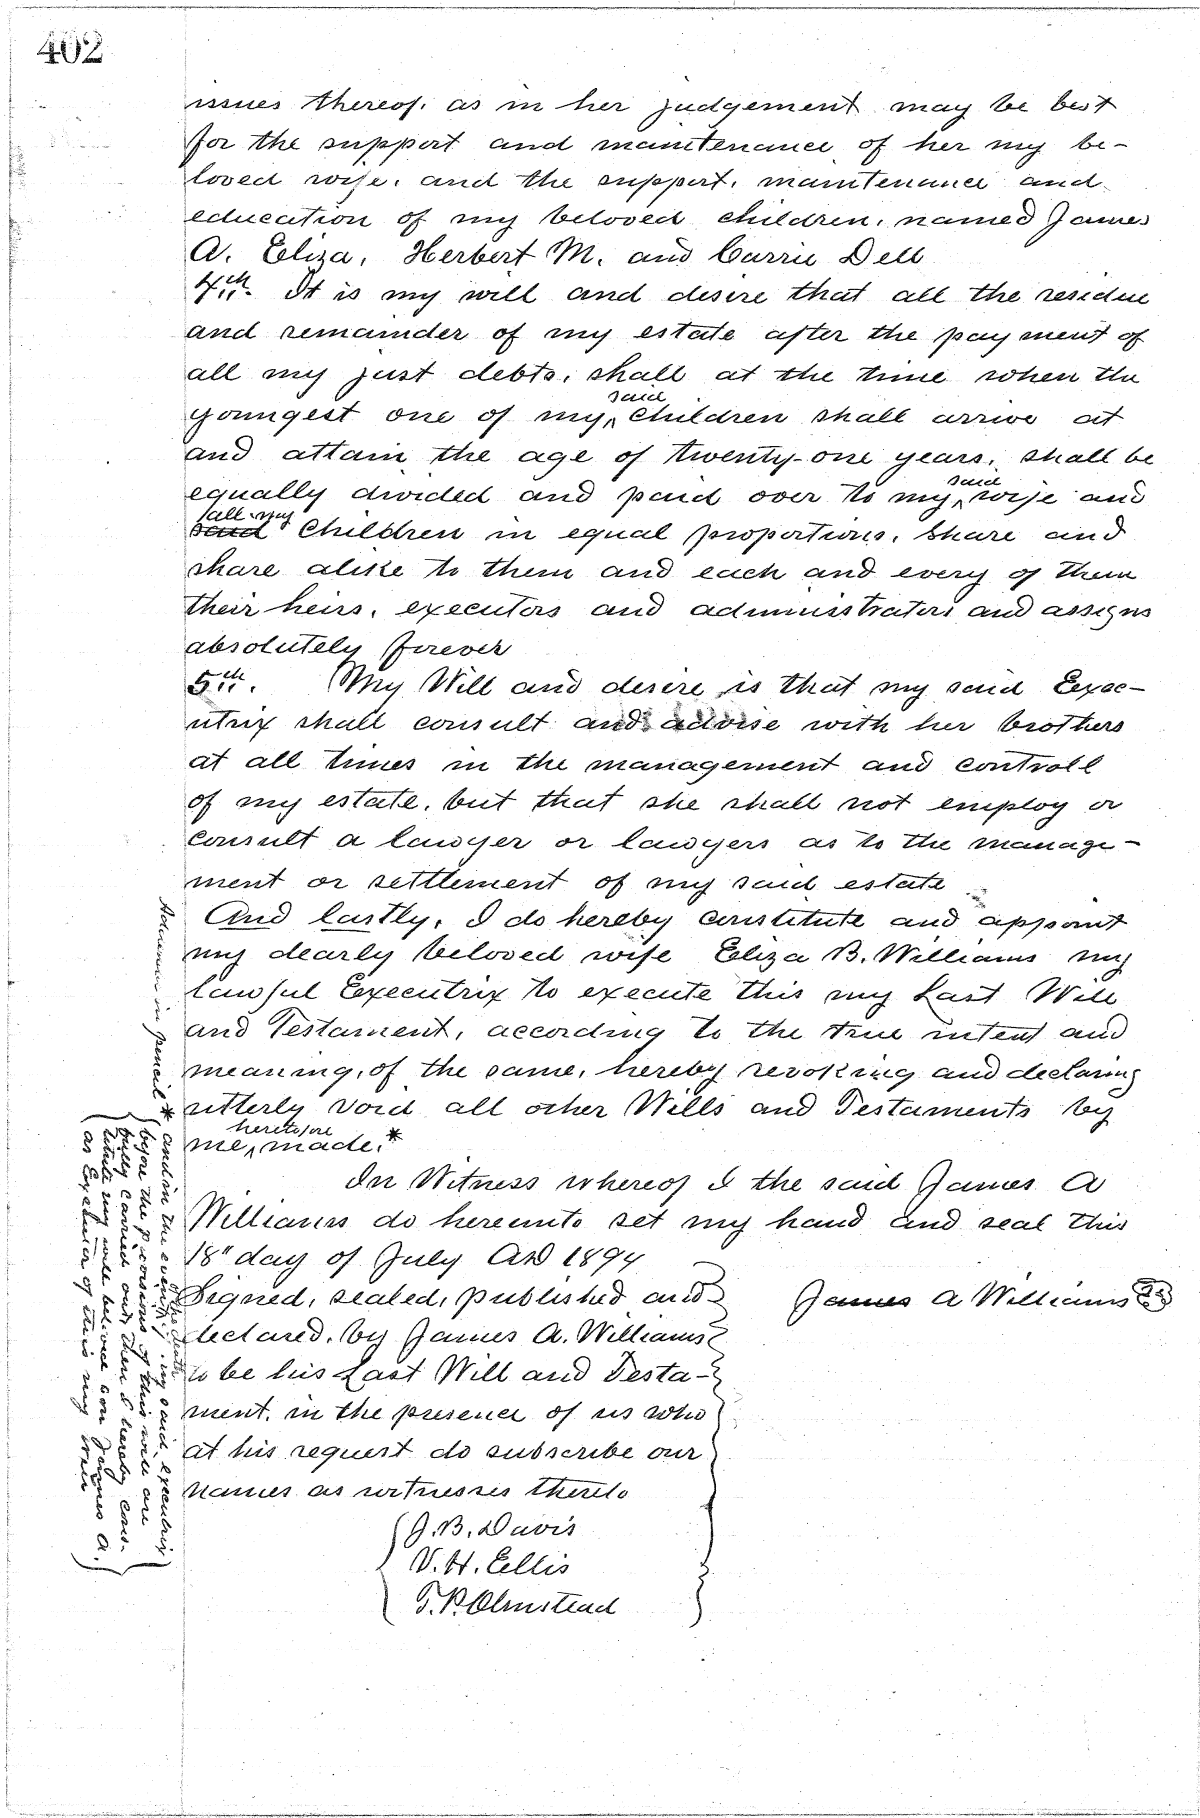 402
issues thereof. as in her judgement may be best
for the support and maintenance of her my be-
loved wife. and the support, maintenance and
education of my beloved children, named James
A. Eliza, Herbert M. and Carrie Dell
4th. It is my will and desire that all the residue
and remainder of my estate after the payment of
all my just debts, shall at the time when the
said
youngest one of my children shall arrive at
and attain the age of twenty-one years, shall be
said
equally divided and paid over to my wife and
all my
said children in equal proportions, share and
share alike to them and each and every of them
their heirs, executors and administrators and assigns
absolutely forever
5th. My Will and desire is that my said Exec-
utrix shall consult and advise with her brothers
at all times in the management and controll
of my estate, but that she shall not employ or
consult a lawyer or lawyers as to the manage-
ment or settlement of my said estate
And lastly, I do hereby constitute and appoint
my dearly beloved wife Eliza B. Williams my
lawful Executrix to execute this my Last Will
and Testament, according to the true intent and
meaning, of the same, hereby revoking and declaring
utterly void all other Wills and Testaments by
heretofore
me, made.*
In Witness whereof I the said James A
Williams do hereunto set my hand and seal this
18" day of July AD 1894
Signed, sealed, published and
declared, by James A. Williams
to be his Last Will and Testa-
ment, in the presence of us who
at his request do subscribe our
names as witnesses thereto
James A Williams
J. B. Davis
V. H. Ellis
T. P. Olmstead
in pencil * and in the event of my said executrix
before the provisions of this will are
fully carried out, then I hereby cons-
titute my beloved son James A.
as Executor of this my will